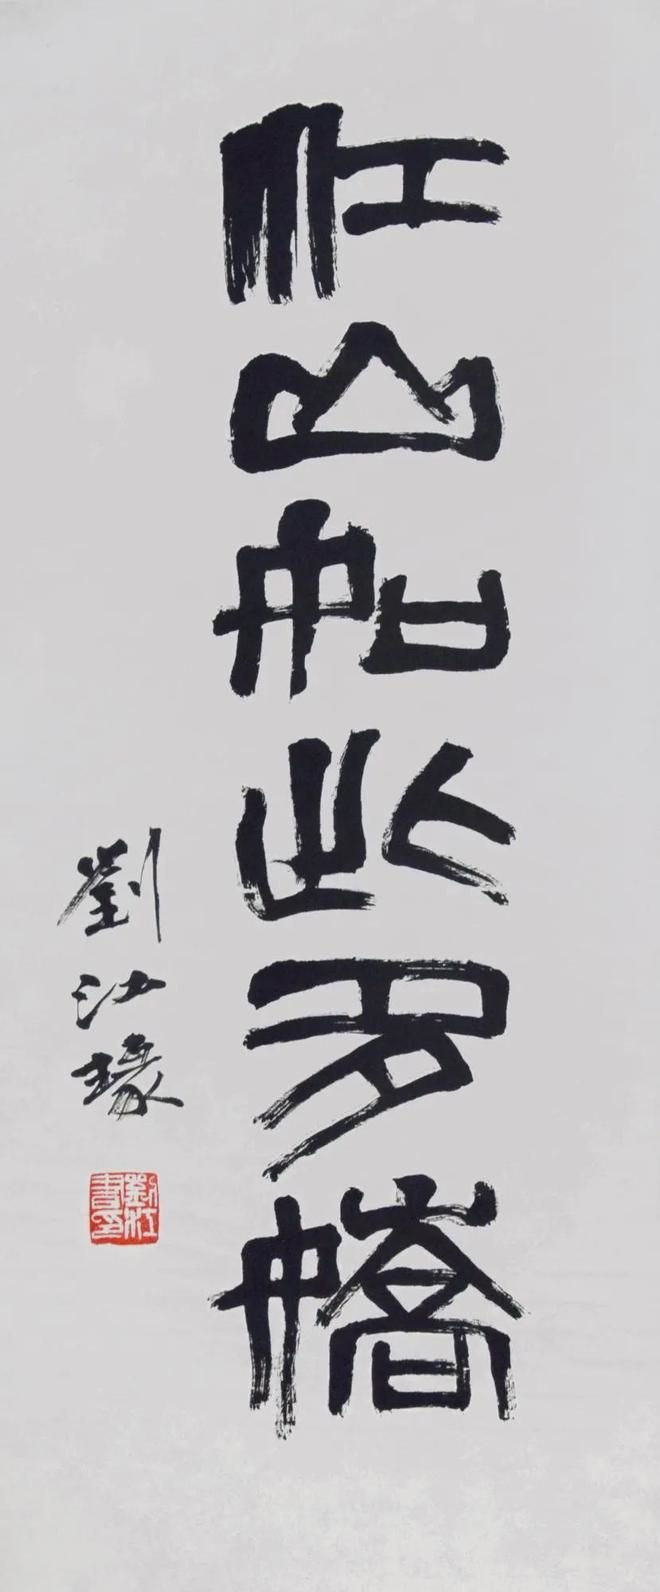 江山如此多嬌
劉江瑑
劉江書印